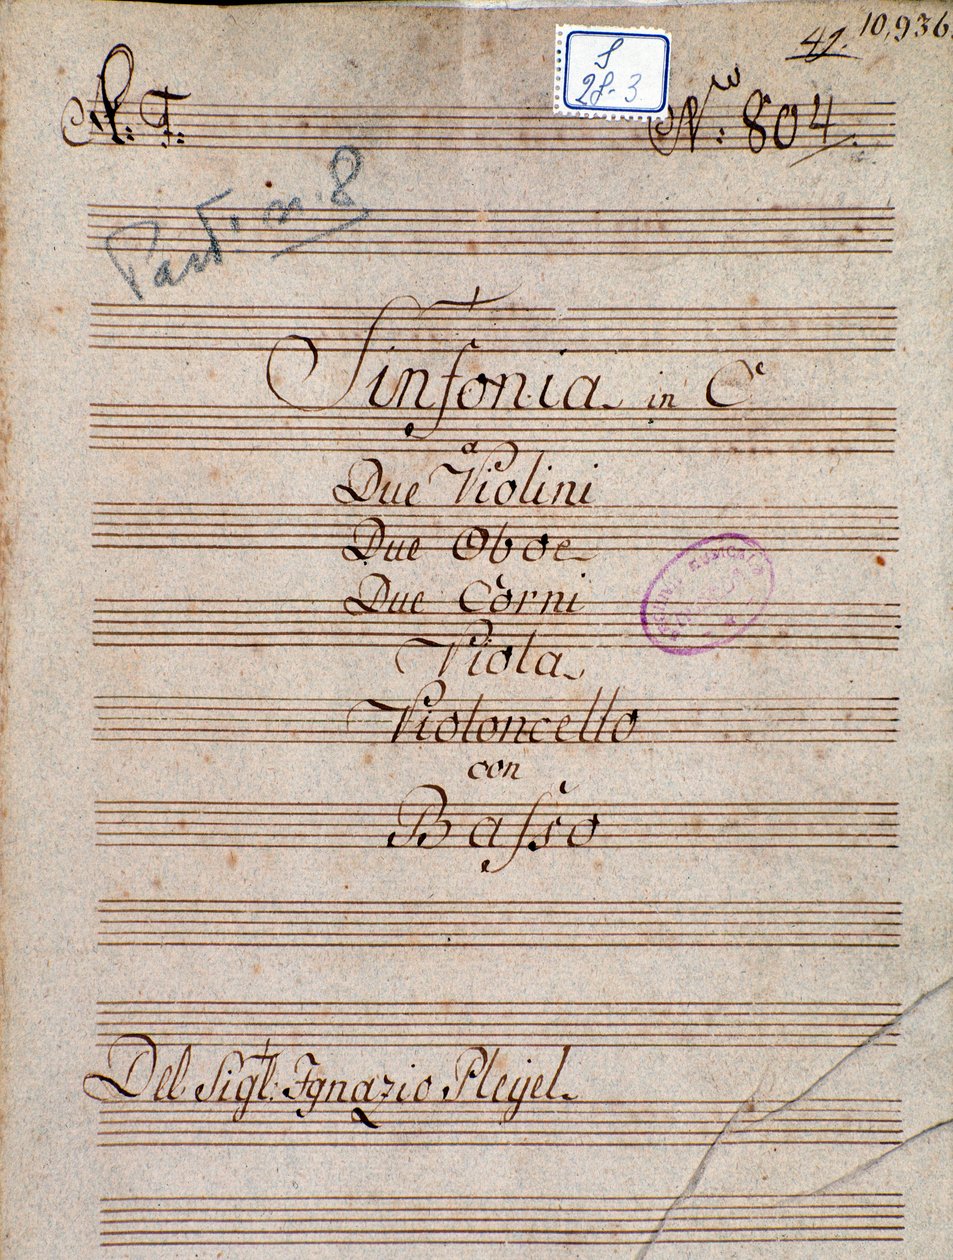 42. 10,936.
S
28. 3
A: F: Nro: 804.
Part. in. 8
Sinfonia in C
a
Due Violini
Due Oboe
Due Corni
Viola
Violoncello
con
Baſso
Del Sigl: Ignazio Pleijel.